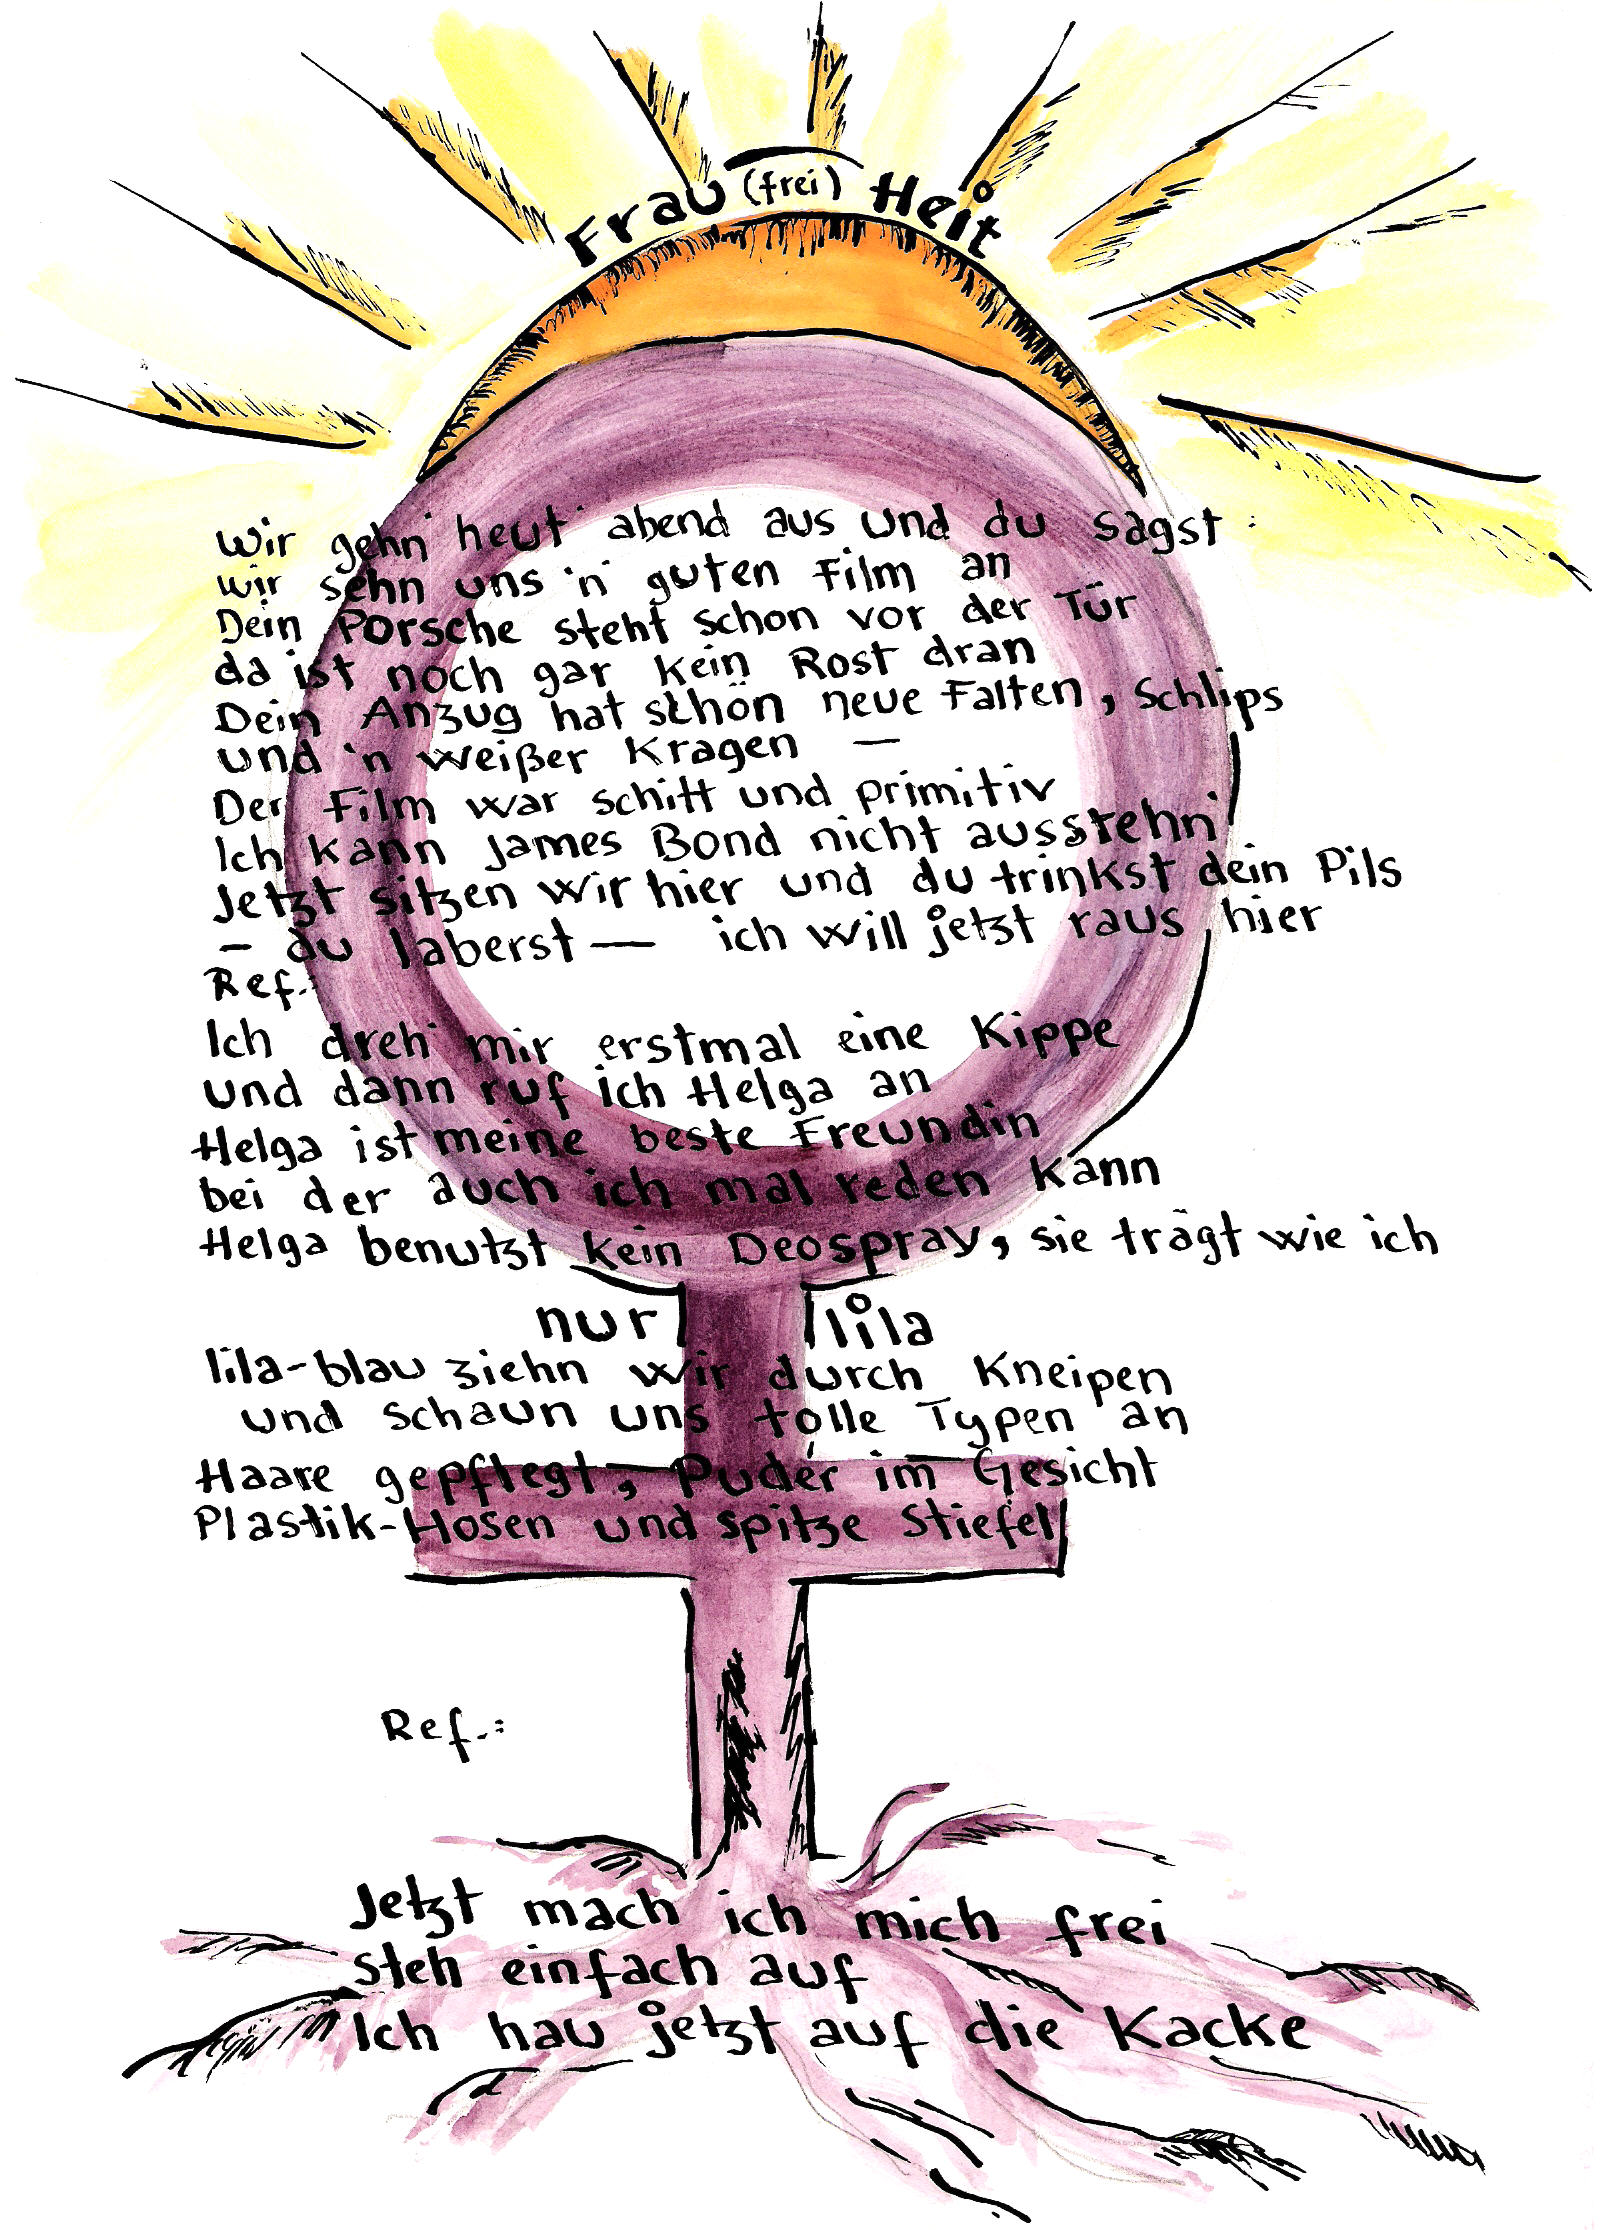 Frau (frei) Heit
Wir gehn' heut' abend aus und du sagst:
wir sehn uns 'n' guten Film an
Dein Porsche steht schon vor der Tür
da ist noch gar kein Rost dran
Dein Anzug hat schön neue Falten, Schlips
und 'n weißer Kragen —
Der Film war schitt und primitiv
Ich kann James Bond nicht ausstehn'
Jetzt sitzen wir hier und du trinkst dein Pils
– du laberst — ich will jetzt raus hier
Ref.:
Ich dreh' mir erstmal eine Kippe
und dann ruf ich Helga an
Helga ist meine beste Freundin
bei der auch ich mal reden kann
Helga benutzt kein Deospray, sie trägt wie ich
nur lila
lila-blau ziehn wir durch Kneipen
und schaun uns tolle Typen an
Haare gepflegt, Puder im Gesicht
Plastik-Hosen und spitze Stiefel
Ref.:
Jetzt mach ich mich frei
steh einfach auf
Ich hau jetzt auf die Kacke